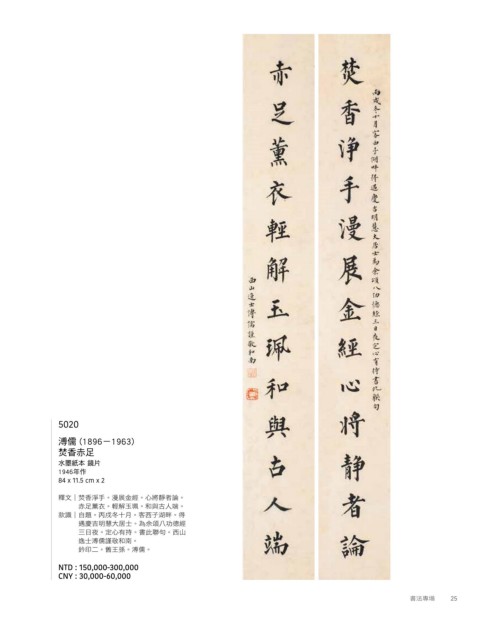 焚香淨手漫展金經心將靜者論
丙戌冬十月客西子湖畔得遇慶吉明慧大居士為余頌八功德經三日夜定心有持書此聯句
赤足薰衣輕解玉珮和與古人端
西山逸士溥儒謹敬和南
5020
溥儒 (1896－1963)
焚香赤足
水墨紙本 鏡片
1946年作
84 x 11.5 cm x 2
釋文｜焚香淨手，漫展金經，心將靜者論。
赤足薰衣，輕解玉珮，和與古人端。
款識｜自題，丙戌冬十月，客西子湖畔，得
遇慶吉明慧大居士，為余頌八功德經
三日夜，定心有持，書此聯句。西山
逸士溥儒謹敬和南。
鈐印二，舊王孫、溥儒。
NTD : 150,000-300,000
CNY : 30,000-60,000
書法專場 25